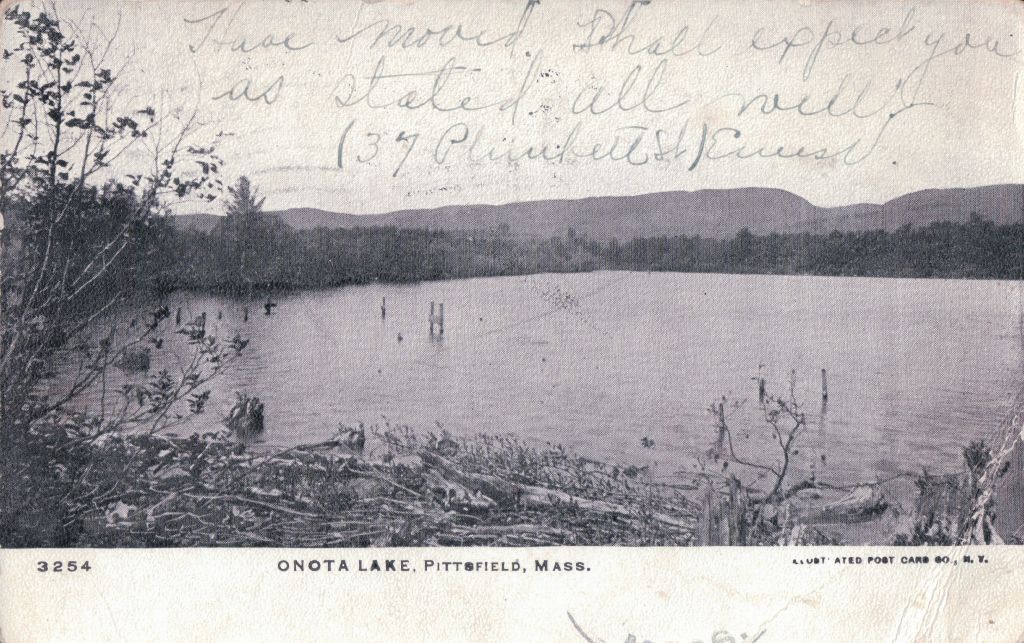 Have moved, Shall expect you
as stated, all well.
(37 Plunkett St) Ernest.
3254 ONOTA LAKE, PITTSFIELD, MASS. ILLUSTRATED POST CARD CO., N. Y.